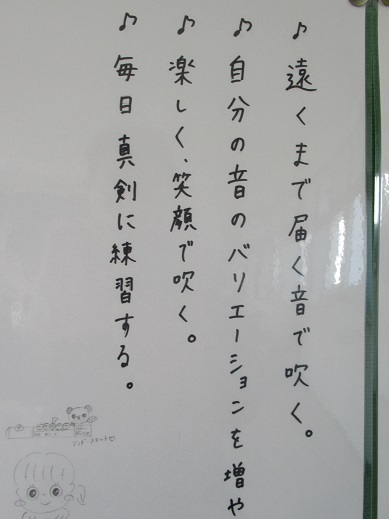 ♪遠くまで届く音で吹く。
♪自分の音のバリエーションを増や
♪楽しく、笑顔で吹く。
♪毎日真剣に練習する。